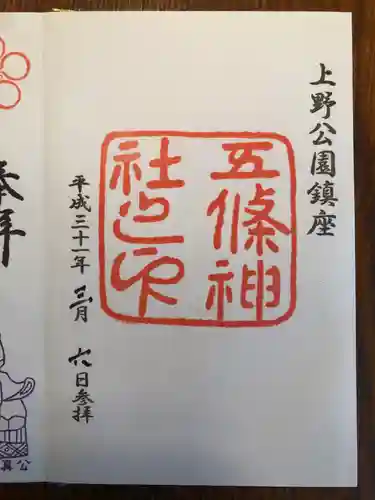 上野公園鎮座
五條神
社之印
平成三十一年 三月 六日参拝
奉拝